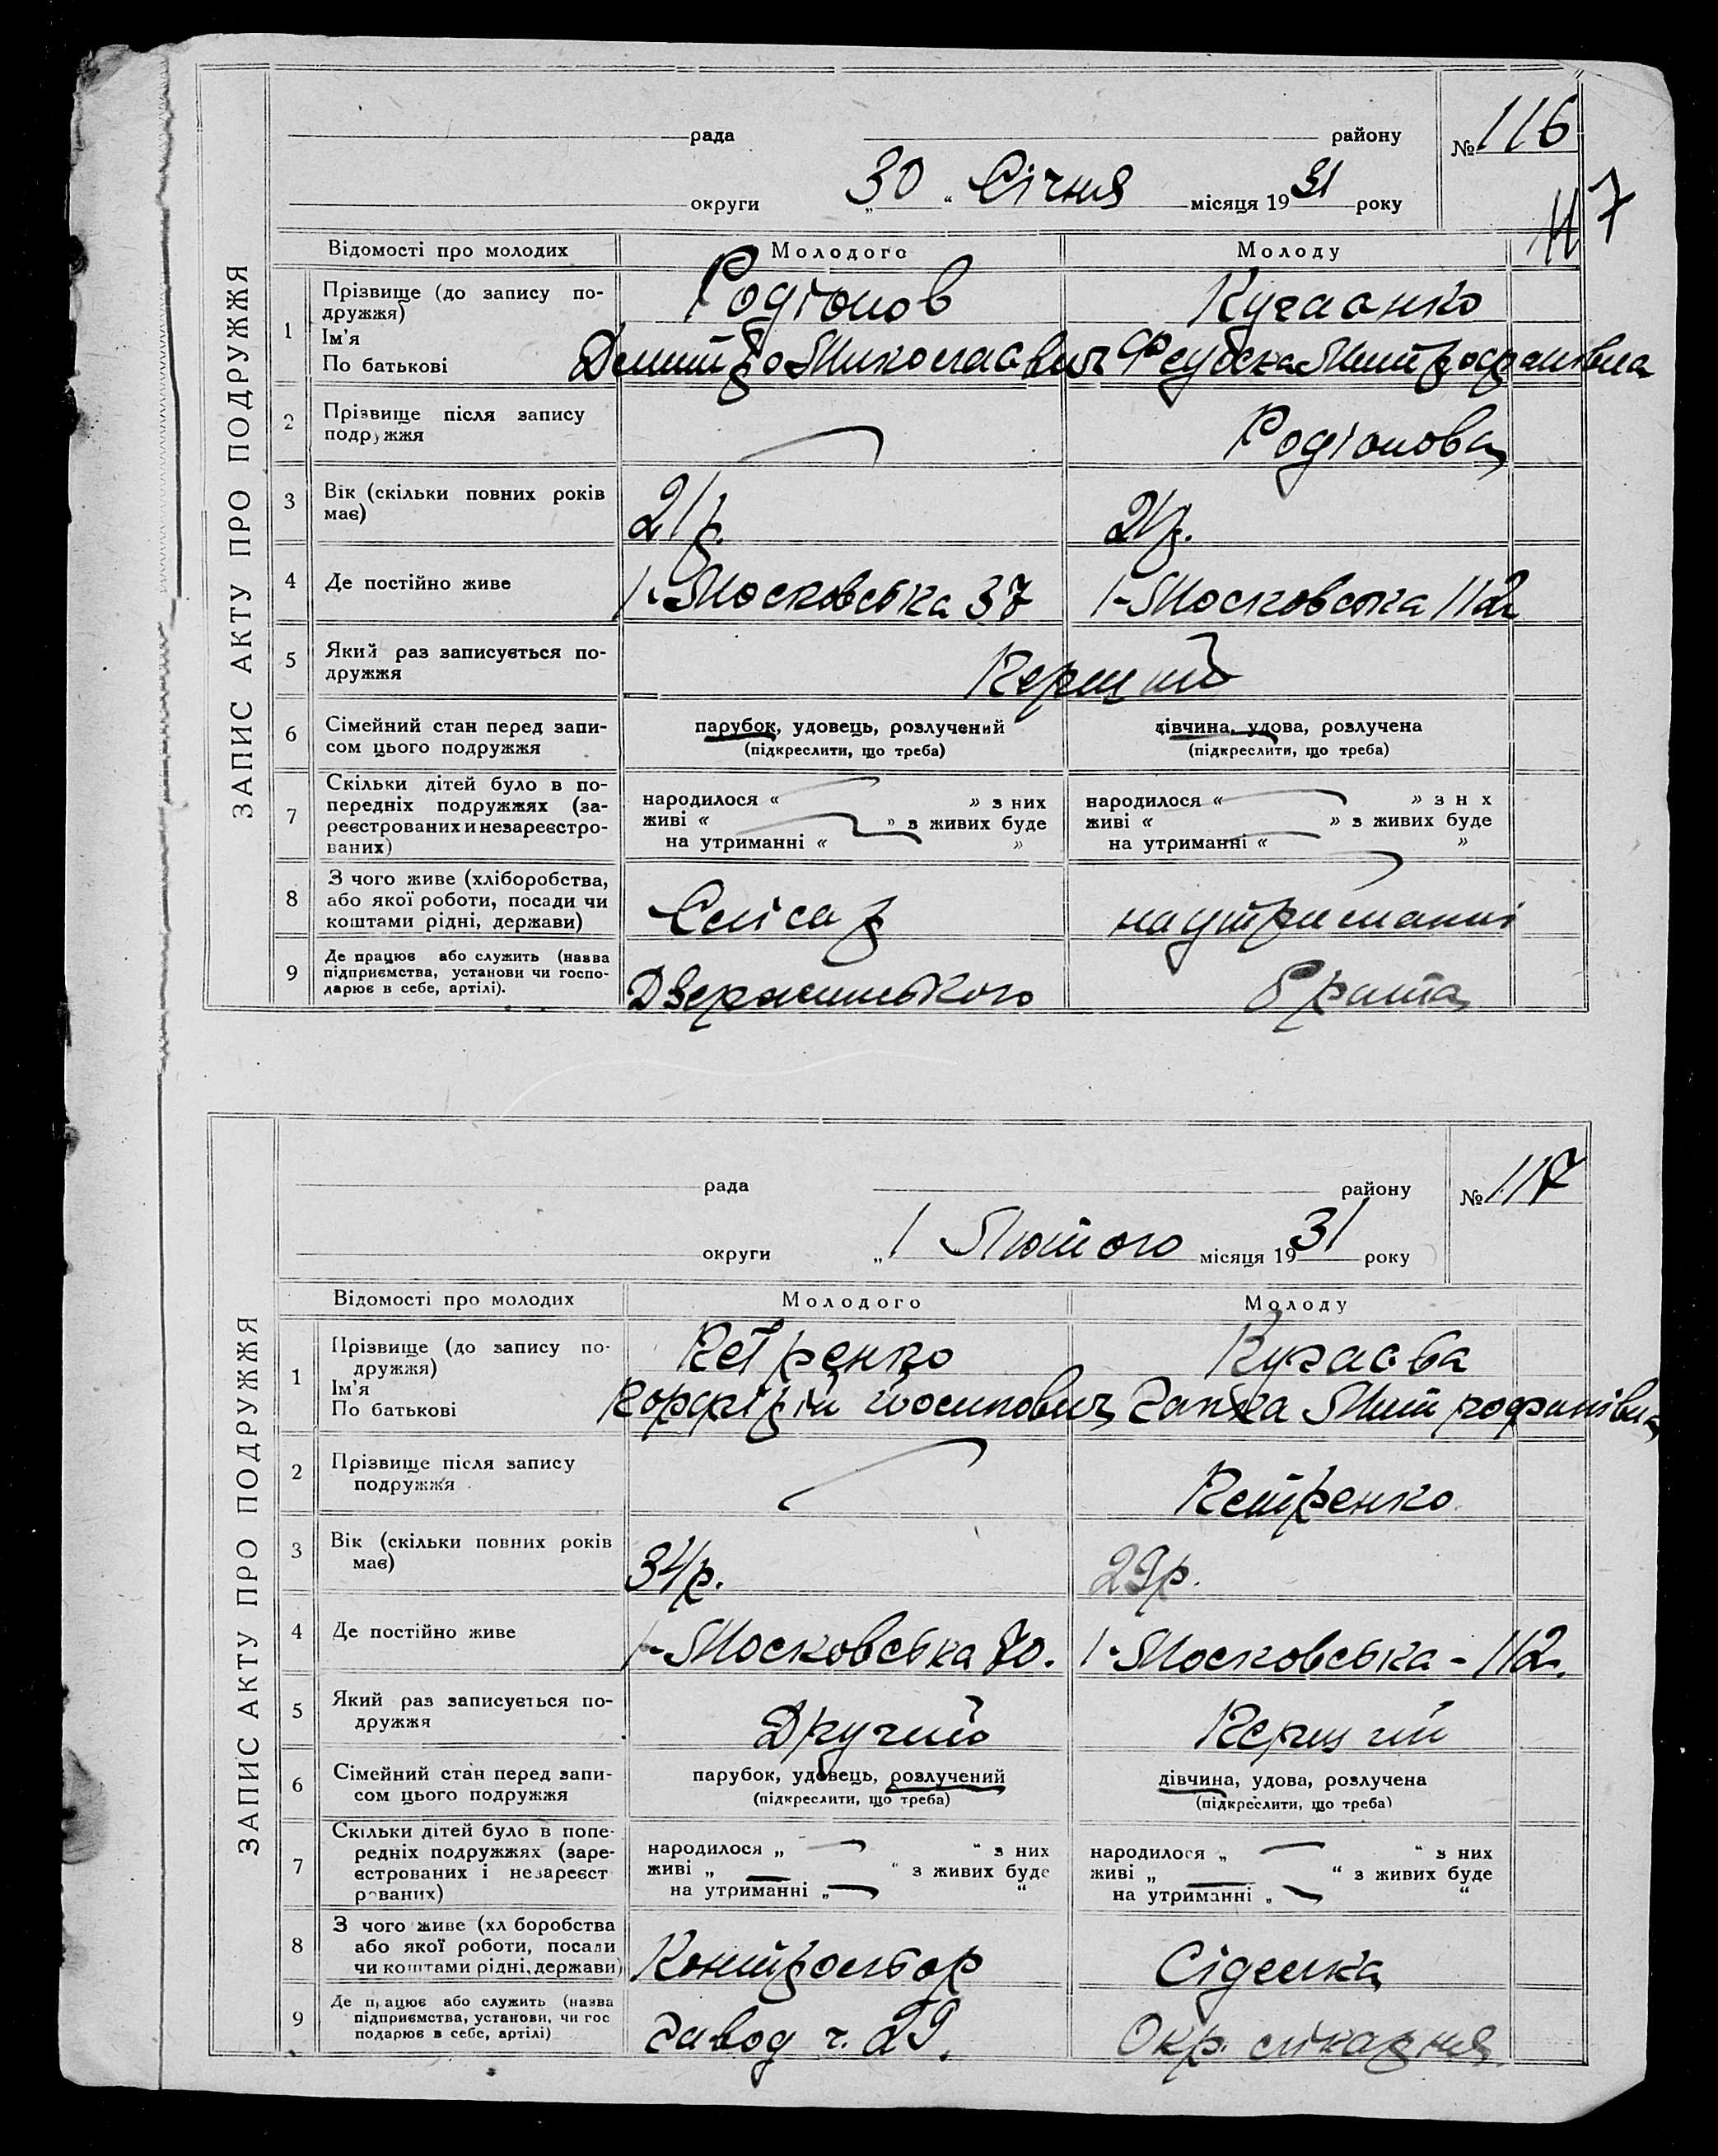 ЗАПИС АКТУ ПРО ПОДРУЖЖЯ
рада району № 116
округи „30“ Січня місяця 1931 року
117
Відомості про молодих Молодого Молоду
1 Прізвище (до запису по-
дружжя) Родіонов
Ім'я
По батькові Дмитро Миколаєвич Митрофанівна
2 Прізвище після запису
подружжя Родіонова
3 Вік (скільки повних років
має) 21р. 21р.
4 Де постійно живе 1-Московська 37 1-Московська 112
5 Який раз записується по-
дружжя Перший
6 Сімейний стан перед запи-
сом цього подружжя
парубок, удовець, розлучений дівчина, удова, розлучена
(підкреслити, що треба) (підкреслити, що треба)
7 Скільки дітей було в по-
передніх подружжях (за-
реєстрованих и незареєстро-
ваних)
народилося « » з них народилося « » з н х
живі « » з живих буде живі « » з живих буде
на утриманні « » на утриманні « »
8 З чого живе (хліборобства,
або якої роботи, посади чи
коштами рідні, держави) Слісар на утриманні
9 Де працює або служить (назва
підприємства, установи чи госпо-
дарює в себе, артілі). Дзержинського брата
ЗАПИС АКТУ ПРО ПОДРУЖЖЯ
рада району № 117
округи „1 Лютого місяця 1931 року
Відомості про молодих Молодого Молоду
1 Прізвище (до запису по-
дружжя) Петренко
Ім'я
По батькові Порфірій Йосипович Ганка Митрофанівна
2 Прізвище після запису
подружжя Петренко
3 Вік (скільки повних років
має) 34р. 29р.
4 Де постійно живе 1-Московська 70. 1-Московська - 112.
5 Який раз записується по-
дружжя Другий Перший
6 Сімейний стан перед запи-
сом цього подружжя
парубок, удовець, розлучений дівчина, удова, розлучена
(підкреслити, що треба) (підкреслити, що треба)
7 Скільки дітей було в попе-
редніх подружжях (заре-
єстрованих і незареєст
рованих)
народилося „ “ з них народилося „ “ з них
живі „ “ з живих буде живі „ “ з живих буде
на утриманні „ “ на утриманні „ “
8 З чого живе (хл боробства
або якої роботи, посади
чи коштами рідні, держави) Контрольор Сіделка
9 Де працює або служить (назва
підприємства, установи, чи гос
подарює в себе, артілі) Завод ч. 29. Окр. лікарня.